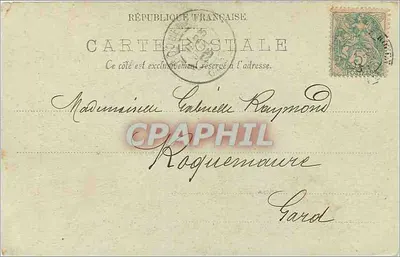 RÉPUBLIQUE FRANÇAISE
CARTE POSTALE
Ce côté est exclusivement réservé à l'adresse.
Mademoiselle Gabrielle Raymond
CPAPHIL
Roquemaure
Gard